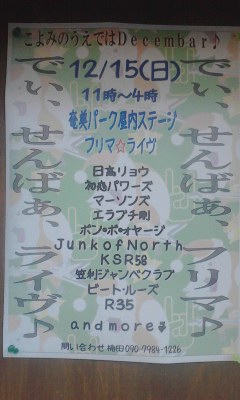 こよみのうえではDecembar♪
でぃ、せんばぁ、フリマ♪
12/15(日)
11時〜4時
奄美パーク屋内ステージ
フリマ☆ライヴ
日高リョウ
初処パワーズ
マーソンズ
エラブチ剛
ボン・ボ・ォヤージ
JunkofNorth
KSR58
笠利ジャンベクラブ
ビート・ルーズ
R35
andmore
問い合わせ 090-7984-1226
でぃ、せんばぁ、ライヴ♪